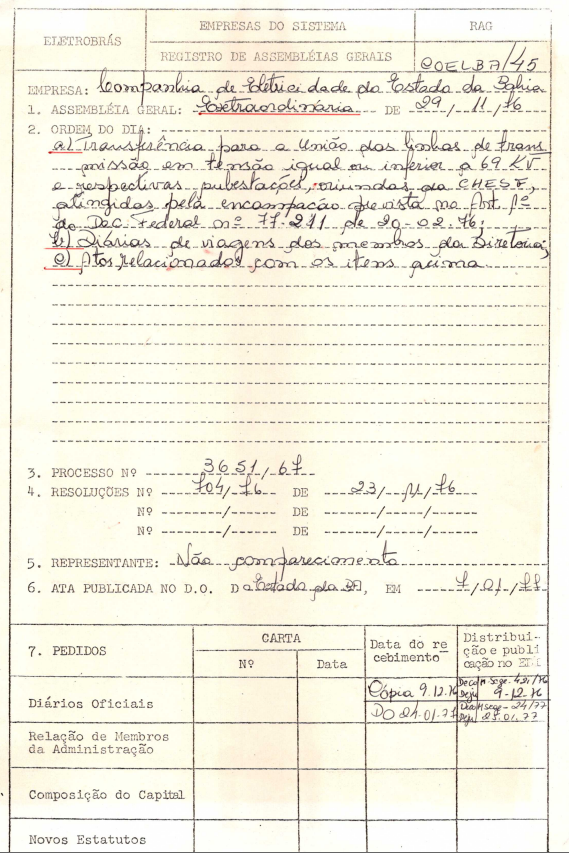 ELETROBRÁS
EMPRESAS DO SISTEMA
RAG
REGISTRO DE ASSEMBLÉIAS GERAIS
COELBA/45
EMPRESA: Companhia de Eletricidade do Estado da Bahia
1. ASSEMBLÉIA GERAL: Extraordinária DE 29/11/76
2. ORDEM DO DIA:
a) Transferência para a União das linhas de trans
missão em tensão igual ou inferior a 69 KV
e respectivas subestações, oriundas da CHESF,
atingidas pela encampação prevista no Art. 1º
do Dec. Federal nº 77.211 de 20-02-76;
b) Diárias de viagens dos membros da Diretoria;
c) Atos relacionados com os itens acima.
3. PROCESSO Nº 3651/67
4. RESOLUÇÕES Nº 704/76 DE 23/11/76
Nº ------/----- DE -----/----/----
Nº ------/----- DE -----/----/----
5. REPRESENTANTE: Não comparecimento
6. ATA PUBLICADA NO D.O. Do Estado da BA, EM 7/01/77
7. PEDIDOS
CARTA
Nº
Data
Data do re
cebimento
Distribui-
ção e publi
cação no
Diários Oficiais
Cópia 9.12.76
9-12-76
DO 24.01.77
24/77
25.01.77
Relação de Membros
da Administração
Composição do Capital
Novos Estatutos